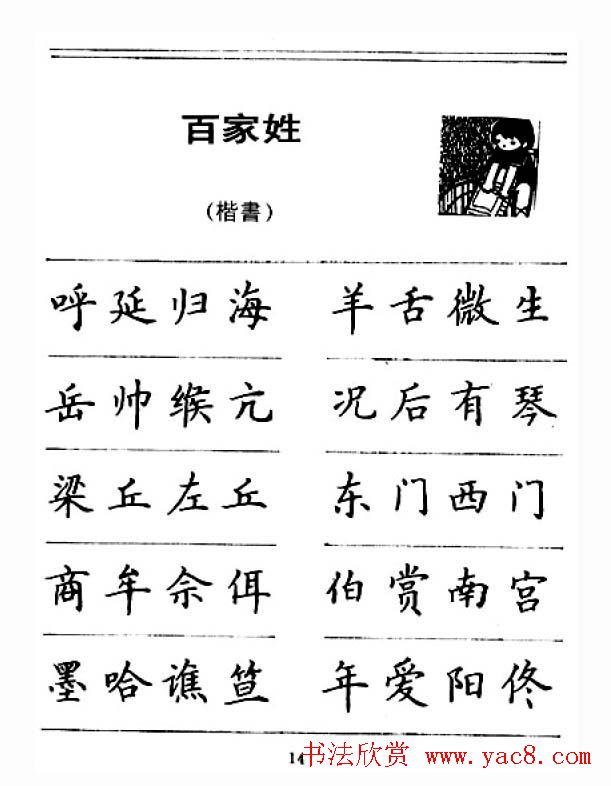 百家姓
(楷書)
呼延归海 羊舌微生
岳帅缑亢 况后有琴
梁丘左丘 东门西门
商牟佘佴 伯赏南宫
墨哈谯笪 年爱阳佟
14 书法欣赏 www.yac8.com